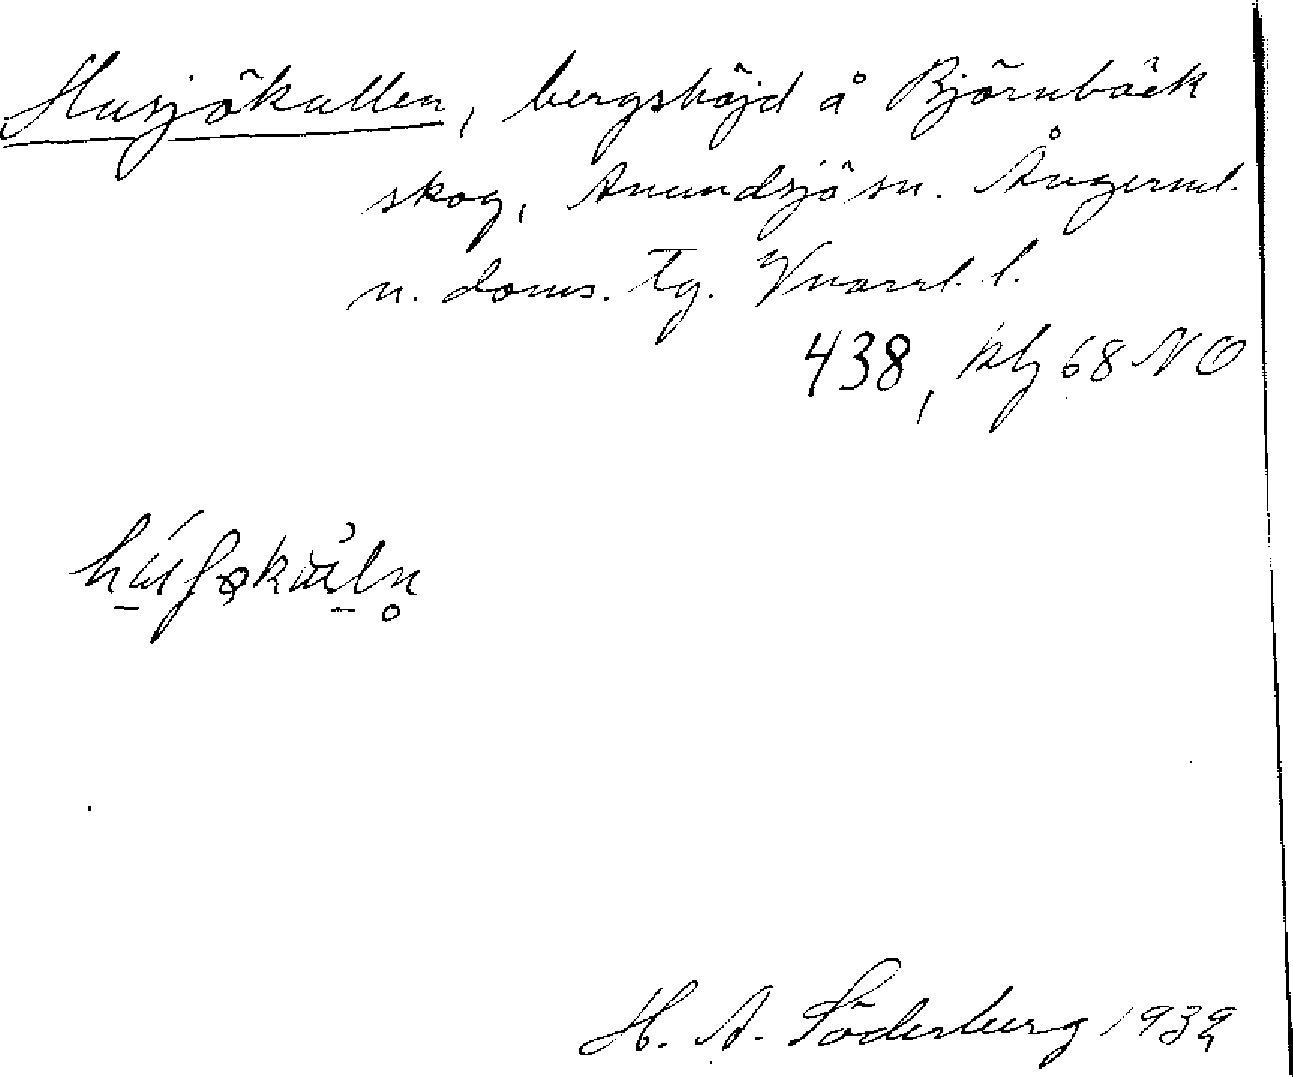 Husjökullen, bergshöjd å Björnbäck
skog, Anundsjö sn. Ångerml.
n. doms. tg.
438, bl 68 NO
H. A. Söderberg 1939